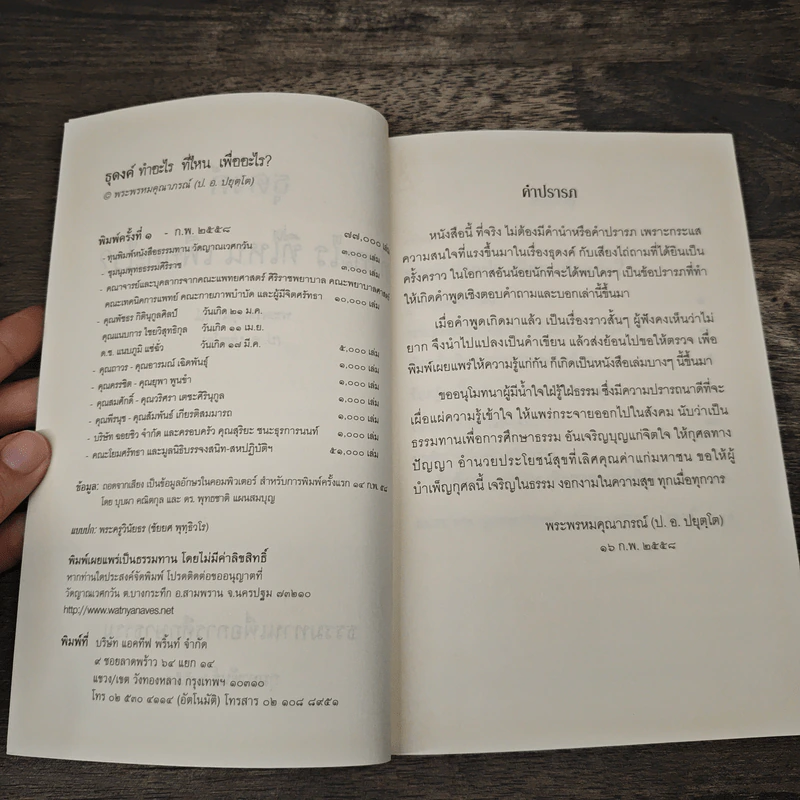 ธุดงค์ ทำอะไร ที่ไหน เพื่ออะไร?
© พระพรหมคุณาภรณ์ (ป. อ. ปยุตฺโต)
พิมพ์ครั้งที่ ๑ - ก.พ. ๒๕๕๘ ๗๗,๐๐๐ เล่ม
- ทุนพิมพ์หนังสือธรรมทาน วัดญาณเวศกวัน ๓,๐๐๐ เล่ม
- ชุมนุมพุทธธรรมศิริราช ๓,๐๐๐ เล่ม
- คณาจารย์และบุคลากรจากคณะแพทยศาสตร์ ศิริราชพยาบาล คณะพยาบาลศาสตร์
คณะเทคนิคการแพทย์ คณะกายภาพบำบัด และผู้มีจิตศรัทธา ๑๐,๐๐๐ เล่ม
- คุณพัชธร กิตินุกูลศิลป์ วันเกิด ๒๑ ม.ค.
คุณแนบการ ไชยวิสุทธิกุล วันเกิด ๑๑ เม.ย.
ด.ช. แนบภูมิ แซ่ฉั่ว วันเกิด ๑๗ มี.ค. ๕,๐๐๐ เล่ม
- คุณถาวร - คุณอารมณ์ เฉิดพันธุ์ ๑,๐๐๐ เล่ม
- คุณครรชิต - คุณยุพา พูนขำ ๑,๐๐๐ เล่ม
- คุณสมศักดิ์ - คุณวริศรา เตชะศิรินุกูล ๑,๐๐๐ เล่ม
- คุณพีรนุช - คุณสัมพันธ์ เกียรติสมมารถ ๑,๐๐๐ เล่ม
- บริษัท ฉอยชิว จำกัด และครอบครัว คุณสุริยะ ชนะธุรการนนท์ ๑,๐๐๐ เล่ม
- คณะโยมศรัทธา และมูลนิธิบรรจงสนิท-สหปฏิบัติฯ ๕๑,๐๐๐ เล่ม
ข้อมูล: ถอดจากเสียง เป็นข้อมูลอักษรในคอมพิวเตอร์ สำหรับการพิมพ์ครั้งแรก ๑๔ ก.พ. ๕๘
โดย บุบผา คณิตกุล และ ดร. พุทธชาติ แผนสมบุญ
แบบปก: พระครูวินัยธร (ชัยยศ พุทฺธิวโร)
พิมพ์เผยแพร่เป็นธรรมทาน โดยไม่มีค่าลิขสิทธิ์
หากท่านใดประสงค์จัดพิมพ์ โปรดติดต่อขออนุญาตที่
วัดญาณเวศกวัน ต.บางกระทึก อ.สามพราน จ.นครปฐม ๗๓๒๑๐
http://www.watnyanaves.net
พิมพ์ที่ บริษัท แอคทีฟ พริ้นท์ จำกัด
๙ ซอยลาดพร้าว ๖๔ แยก ๑๔
แขวง/เขต วังทองหลาง กรุงเทพฯ ๑๐๓๑๐
โทร ๐๒ ๕๓๐ ๔๑๑๔ (อัตโนมัติ) โทรสาร ๐๒ ๑๐๘ ๘๙๕๑
คำปรารภ
หนังสือนี้ ที่จริง ไม่ต้องมีคำนำหรือคำปรารภ เพราะกระแส
ความสนใจที่แรงขึ้นมาในเรื่องธุดงค์ กับเสียงไถ่ถามที่ได้ยินเป็น
ครั้งคราว ในโอกาสอันน้อยนักที่จะได้พบใครๆ เป็นข้อปรารภที่ทำ
ให้เกิดคำพูดเชิงตอบคำถามและบอกเล่านี้ขึ้นมา
เมื่อคำพูดเกิดมาแล้ว เป็นเรื่องราวสั้นๆ ผู้ฟังคงเห็นว่าไม่
ยาก จึงนำไปแปลงเป็นคำเขียน แล้วส่งย้อนไปขอให้ตรวจ เพื่อ
พิมพ์เผยแพร่ให้ความรู้แก่กัน ก็เกิดเป็นหนังสือเล่มบางๆ นี้ขึ้นมา
ขออนุโมทนาผู้มีน้ำใจใฝ่รู้ใฝ่ธรรม ซึ่งมีความปรารถนาดีที่จะ
เผื่อแผ่ความรู้เข้าใจ ให้แพร่กระจายออกไปในสังคม นับว่าเป็น
ธรรมทานเพื่อการศึกษาธรรม อันเจริญบุญแก่จิตใจ ให้กุศลทาง
ปัญญา อำนวยประโยชน์สุขที่เลิศคุณค่าแก่มหาชน ขอให้ผู้
บำเพ็ญกุศลนี้ เจริญในธรรม งอกงามในความสุข ทุกเมื่อทุกวาร
พระพรหมคุณาภรณ์ (ป. อ. ปยุตฺโต)
๑๖ ก.พ. ๒๕๕๘